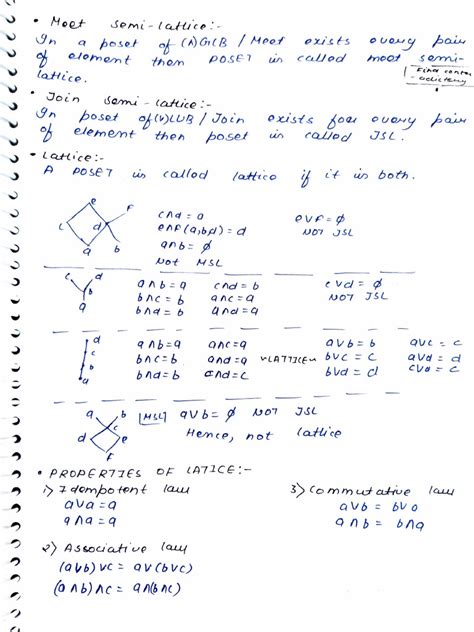 • Meet semi-lattice:-
In a poset of (∧)GLB / Meet exists every pair
of element then POSET is called meet semi-
lattice.
• Join semi-lattice:-
In poset of(∨)LUB / Join exists for every pair
of element then poset is called JSL.
• Lattice:-
A POSET is called lattice if it is both.
e
F
c
d
a
b
c∧d = a
e∨F = ∅
e∧F(a,b,d) = d
NOT JSL
a∧b = ∅
Not MSL
c
d
b
a
a∧b = a
c∧d = b
c∨d = ∅
b∧c = b
a∧c = a
NOT JSL
b∧d = b
a∧d = a
d
c
b
a
a∧b = a
a∧c = a
a∨b = b
a∨c = c
b∧c = b
a∧d = a
LATTICE
b∨c = c
a∨d = d
b∧d = b
c∧d = c
b∨d = d
c∨d = d
a
b
c
d
e
F
MSL
a∨b = ∅ NOT JSL
Hence, not lattice
• PROPERTIES OF LATICE:-
1) Idempotent law
3) Commutative law
a∨a = a
a∨b = b∨a
a∧a = a
a∧b = b∧a
2) Associative law
(a∨b)∨c = a∨(b∨c)
(a∧b)∧c = a∧(b∧c)